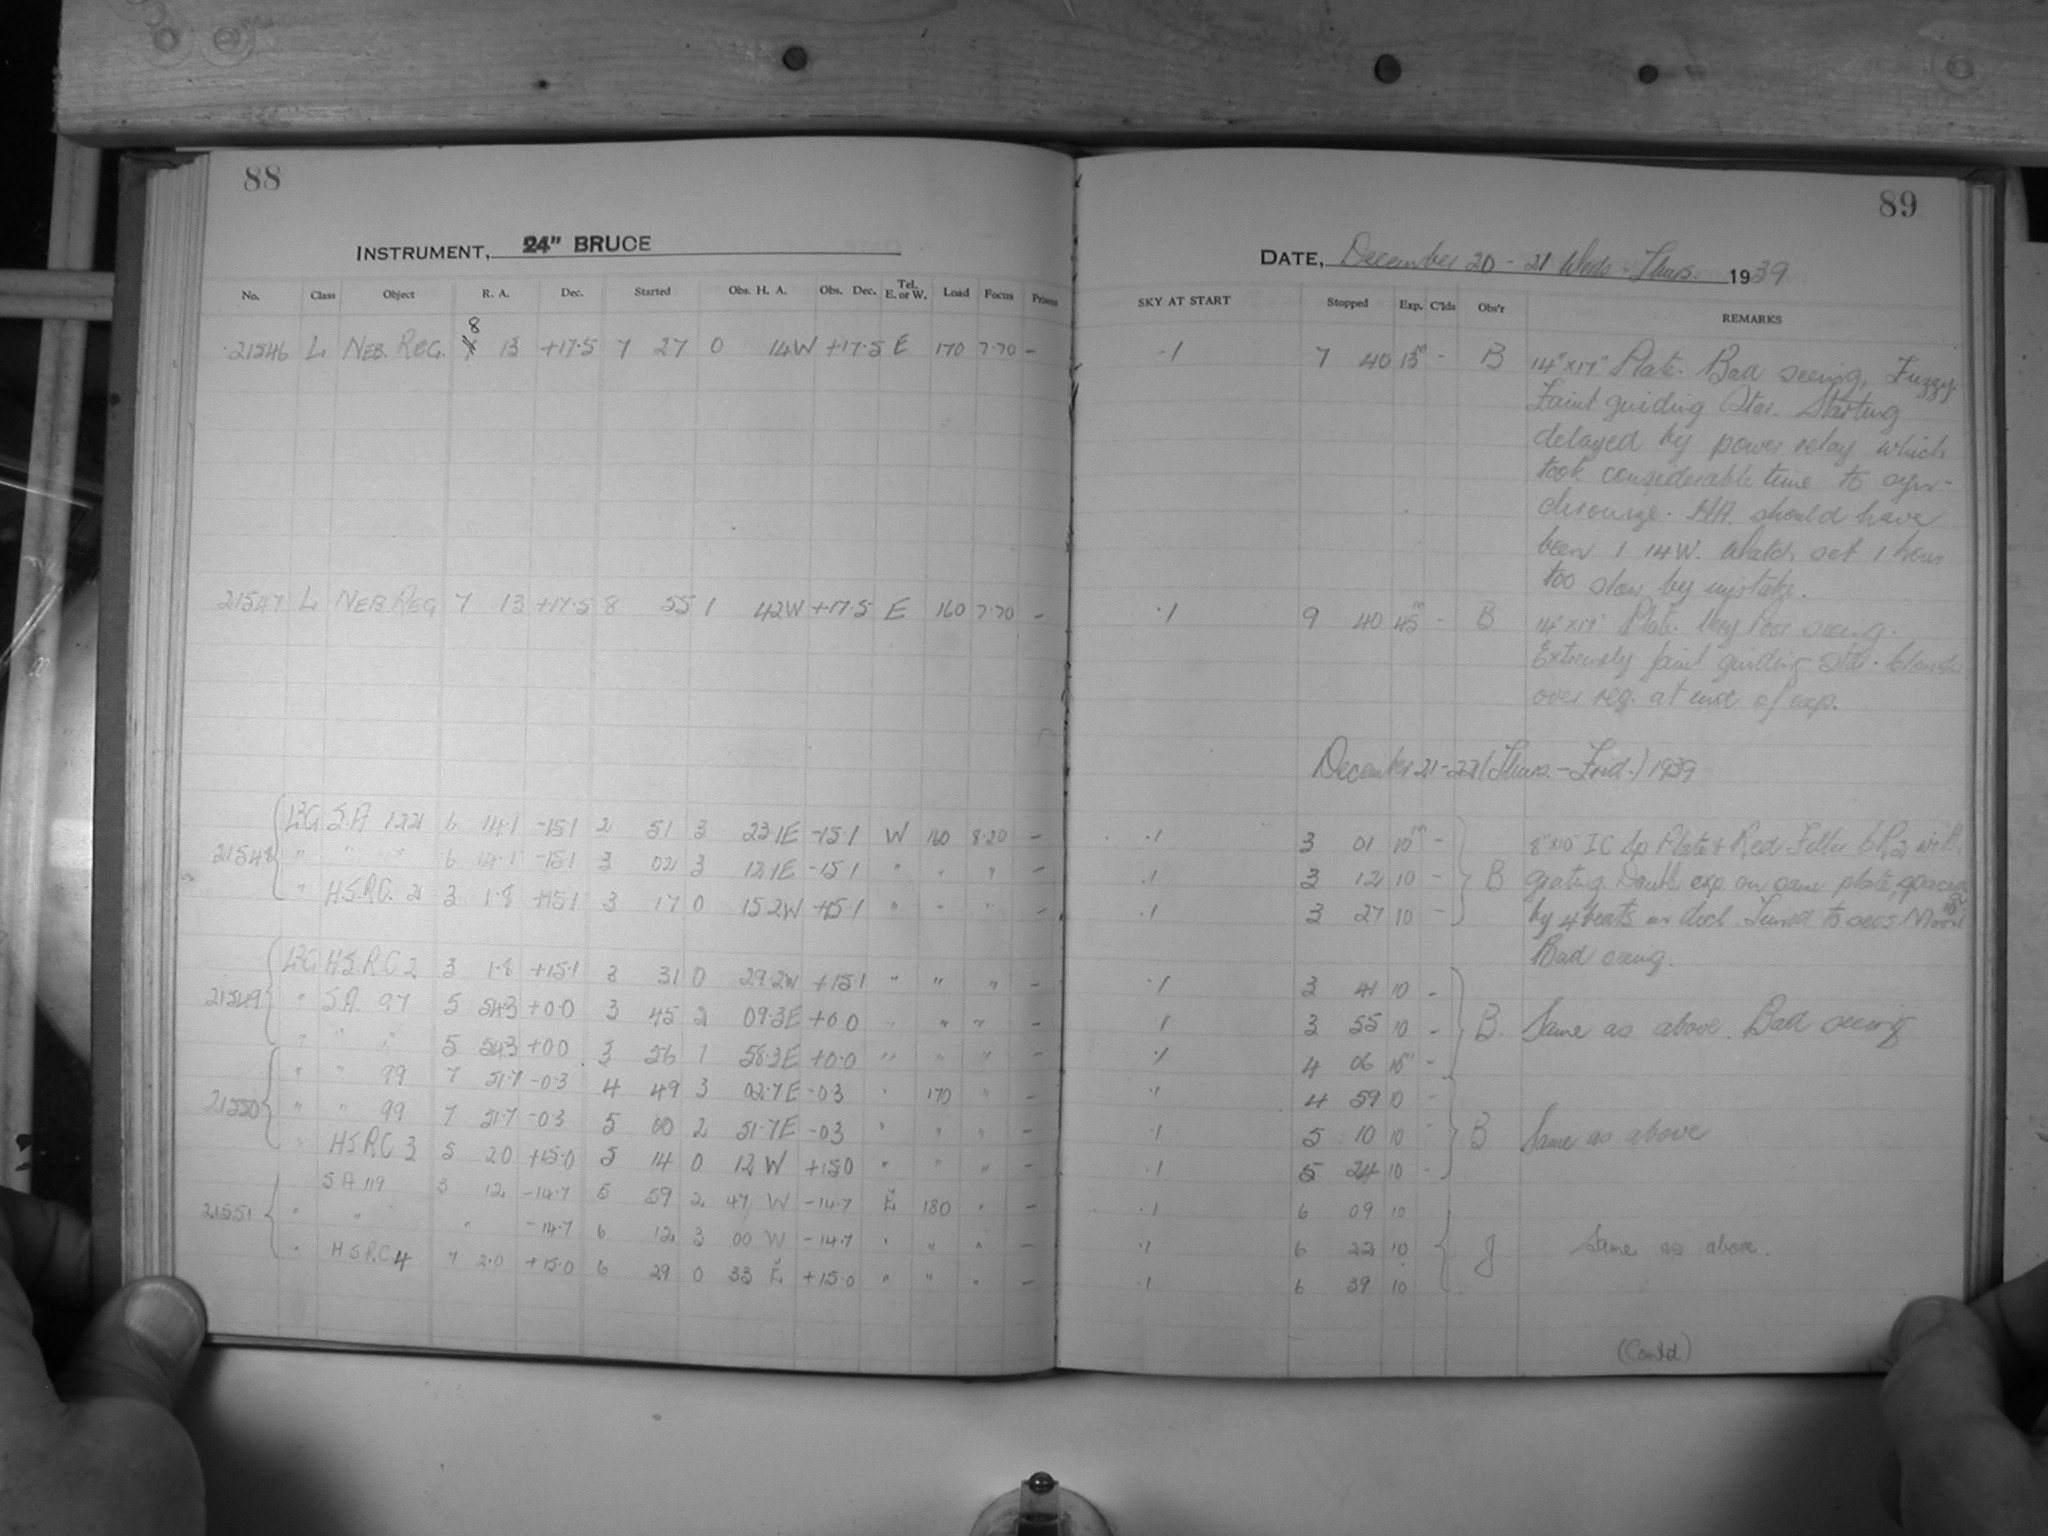 88
INSTRUMENT, 24" BRUCE
No. Class Object R. A. Dec. Started Obs. H. A. Obs. Dec. Tel. E. or W. Load Focus Prisms
8
21546 L NEB. REG. 13 +17.5 7 27 0 14W +17.5 E 170 7.70 -
21547 L NEB REG 7 13 +17.5 8 55 1 42W +17.5 E 160 7.70 -
S.A 121 6 14.1 -15.1 2 51 3 23.1E -15.1 W 160 8.20 -
21548 " " " 6 14.1 -15.1 3 02 3 12.1E -15.1 " " " -
" H.S.P.C. 2 3 1.8 +15.1 3 17 0 15.2W +15.1 " " " -
H.S.P.C 2 3 1.8 +15.1 3 31 0 29.2W +15.1 " " " -
21549 " S.A. 97 5 54.3 +0.0 3 45 2 09.3E +0.0 " " " -
" " " 5 54.3 +0.0 3 56 1 58.3E +0.0 " " " -
" " 99 7 51.7 -0.3 4 49 3 02.7E -0.3 " 170 " -
21550 " " 99 7 51.7 -0.3 5 00 2 51.7E -0.3 " " " -
" H.S.P.C 3 5 2.0 +15.0 5 14 0 12 W +15.0 " " " -
S A 119 3 12. -14.7 5 59 2 47 W -14.7 E 180 " -
21551 " " " -14.7 6 12 3 00 W -14.7 " " " -
" H.S.P.C 4 7 2.0 +15.0 6 29 0 33 E +15.0 " " " -
89
DATE, December 20 - 21 Weds - Thurs. 1939
SKY AT START Stopped Exp. C'lds Obs'r REMARKS
.1 7 40 13m - B 14" x 17" Plate. Bad seeing, Fuzzy
Faint guiding Star. Starting
delayed by power relay which
took considerable time to syn-
chronize. HA. should have
been 1 14W. Watch set 1 hour
too slow by mistake.
.1 9 40 45m - B 14" x 17" Plate. Very Poor seeing.
Extremely faint guiding star. Clouds
over reg. at end of exp.
December 21-22 (Thurs. - Frid.) 1939
.1 3 01 10m - 8" x 10" I C Sp Plate & Red Filter with
.1 3 12 10 - B grating. Double exp. on same plate, spaced
.1 3 27 10 - by 4 beats in decl. Moon
Bad seeing.
.1 3 41 10 -
.1 3 55 10 - B. Same as above. Bad seeing
.1 4 06 10m -
.1 4 59 10 -
.1 5 10 10 B Same as above
.1 5 24 10 -
.1 6 09 10
.1 6 22 10 J Same as above.
.1 6 39 10
(Contd)